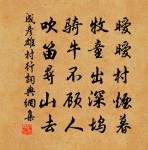 曖曖村煙暮
牧童出深塢
騎牛不顧人
吹笛尋山去
成彥雄村行詞典網集